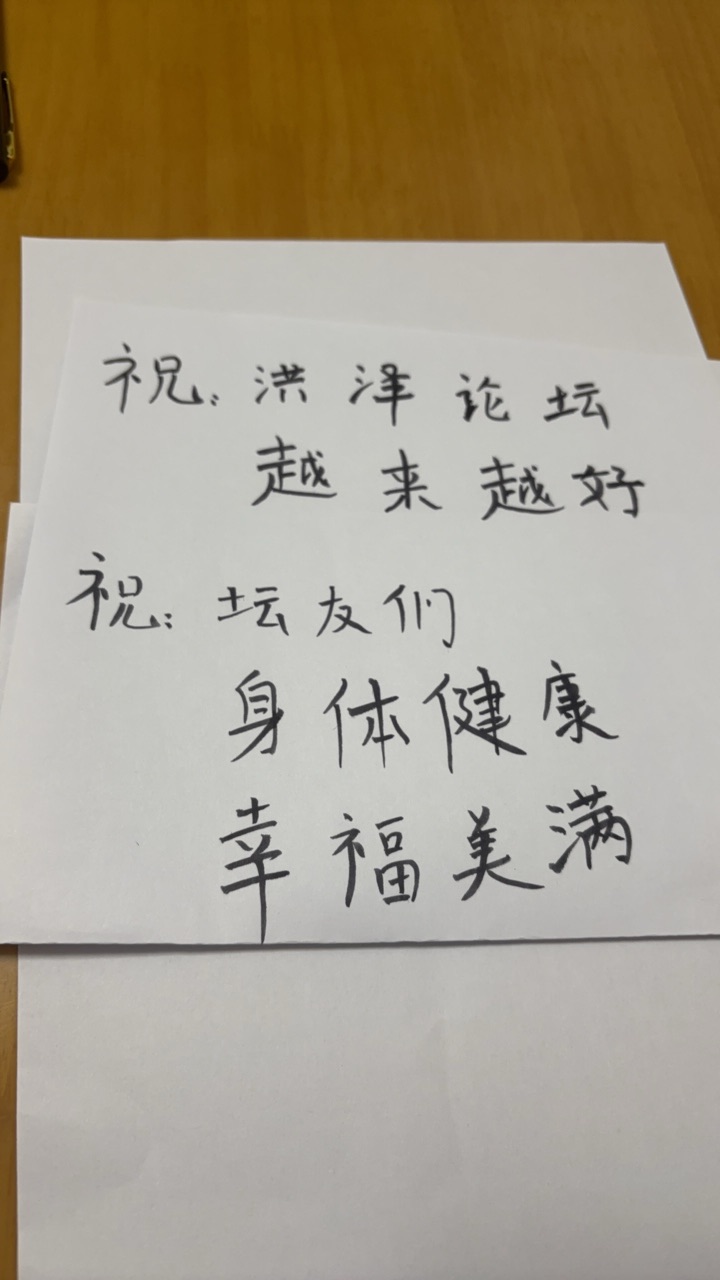 祝:洪泽论坛
越来越好
祝:坛友们
身体健康
幸福美满